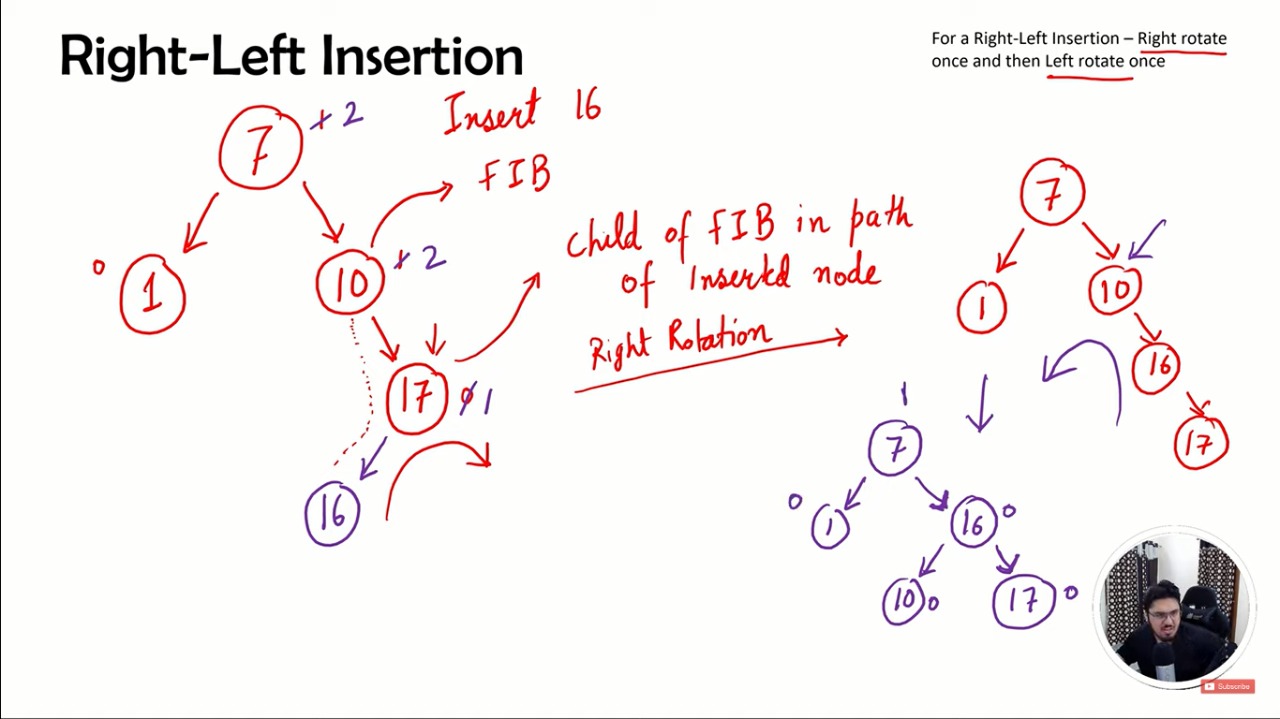 Right-Left Insertion
For a Right-Left Insertion – Right rotate
once and then Left rotate once
Insert 16
7 + 2
FIB
0 1
10 + 2
Child of FIB in path
of Inserted node
Right Rotation
17 0 1
16
7
1 10
16
17
1
7
0 1 16 0
10 0 17 0
Subscribe